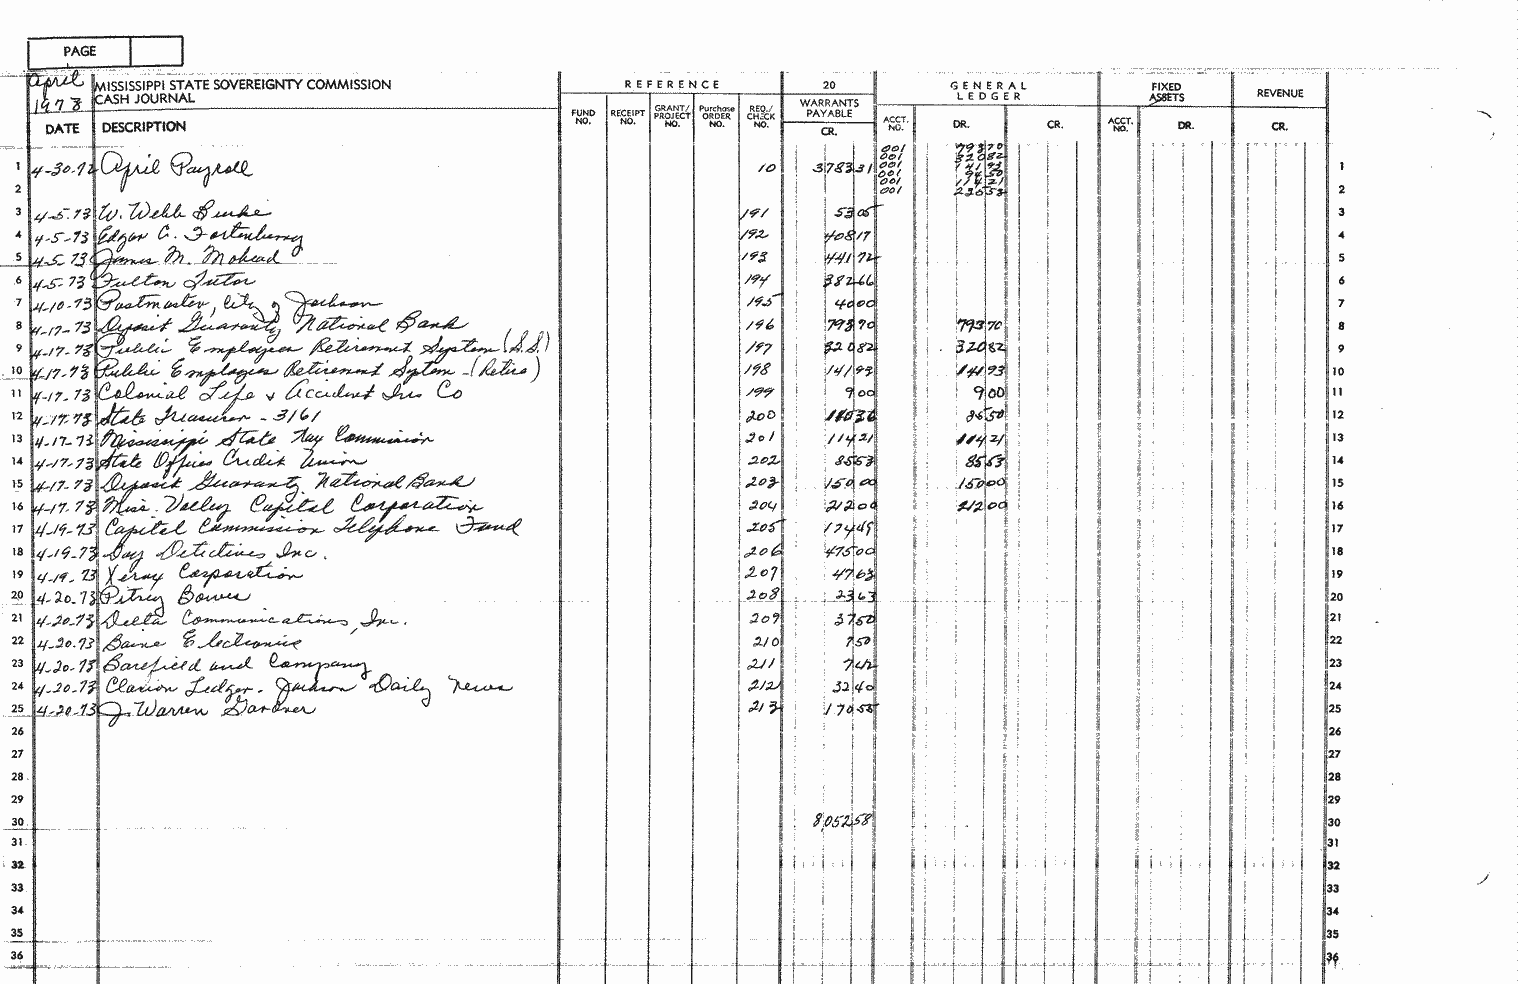 PAGE
April 1973
MISSISSIPPI STATE SOVEREIGNTY COMMISSION
CASH JOURNAL
REFERENCE 20 GENERAL LEDGER FIXED ASSETS REVENUE
DATE DESCRIPTION FUND NO. RECEIPT NO. GRANT/PROJECT NO. Purchase ORDER NO. REQ./CHECK NO. WARRANTS PAYABLE CR. ACCT. NO. DR. CR. ACCT. NO. DR. CR.
001 793 70
001 320 82
1 4-30-72 April Payroll 10 3783 31 001 141 93 1
001 94 50
001 114 21
2 001 236 53 2
3 4-5-73 W. Webb Burke 191 53 05 3
4 4-5-73 Edgar C. Fortenberry 192 408 17 4
5 4-5-73 James M. Mohead 193 441 72 5
6 4-5-73 Fulton Tutor 194 382 66 6
7 4-10-73 Postmaster, City of Jackson 195 40 00 7
8 4-17-73 Deposit Guaranty National Bank 196 793 70 793 70 8
9 4-17-73 Public Employees Retirement System (S.S.) 197 320 82 320 82 9
10 4-17-73 Public Employees Retirement Sytem - (Retire) 198 141 93 141 93 10
11 4-17-73 Colonial Life & Accident Ins Co 199 9 00 9 00 11
12 4-17-73 State Treasurer - 3161 200 85 50 12
13 4-17-73 Mississippi State Tax Commission 201 114 21 114 21 13
14 4-17-73 State Offices Credit Union 202 85 53 85 53 14
15 4-17-73 Deposit Guaranty National Bank 203 150 00 150 00 15
16 4-17-73 Miss. Valley Capital Corporation 204 212 00 212 00 16
17 4-19-73 Capital Commission Telephone Fund 205 174 49 17
18 4-19-73 Day Detectives Inc. 206 475 00 18
19 4-19-73 Xerox Corporation 207 47 63 19
20 4-20-73 Pitney Bowes 208 23 63 20
21 4-20-73 Delta Communications, Inc. 209 37 50 21
22 4-20-73 Baine Electronics 210 7 50 22
23 4-20-73 Barefield and Company 211 7 42 23
24 4-20-73 Clarion Ledger - Jackson Daily News 212 32 40 24
25 4-20-73 J. Warren Gardner 213 170 55 25
26 26
27 27
28 28
29 29
30 8,052 58 30
31 31
32 32
33 33
34 34
35 35
36 36